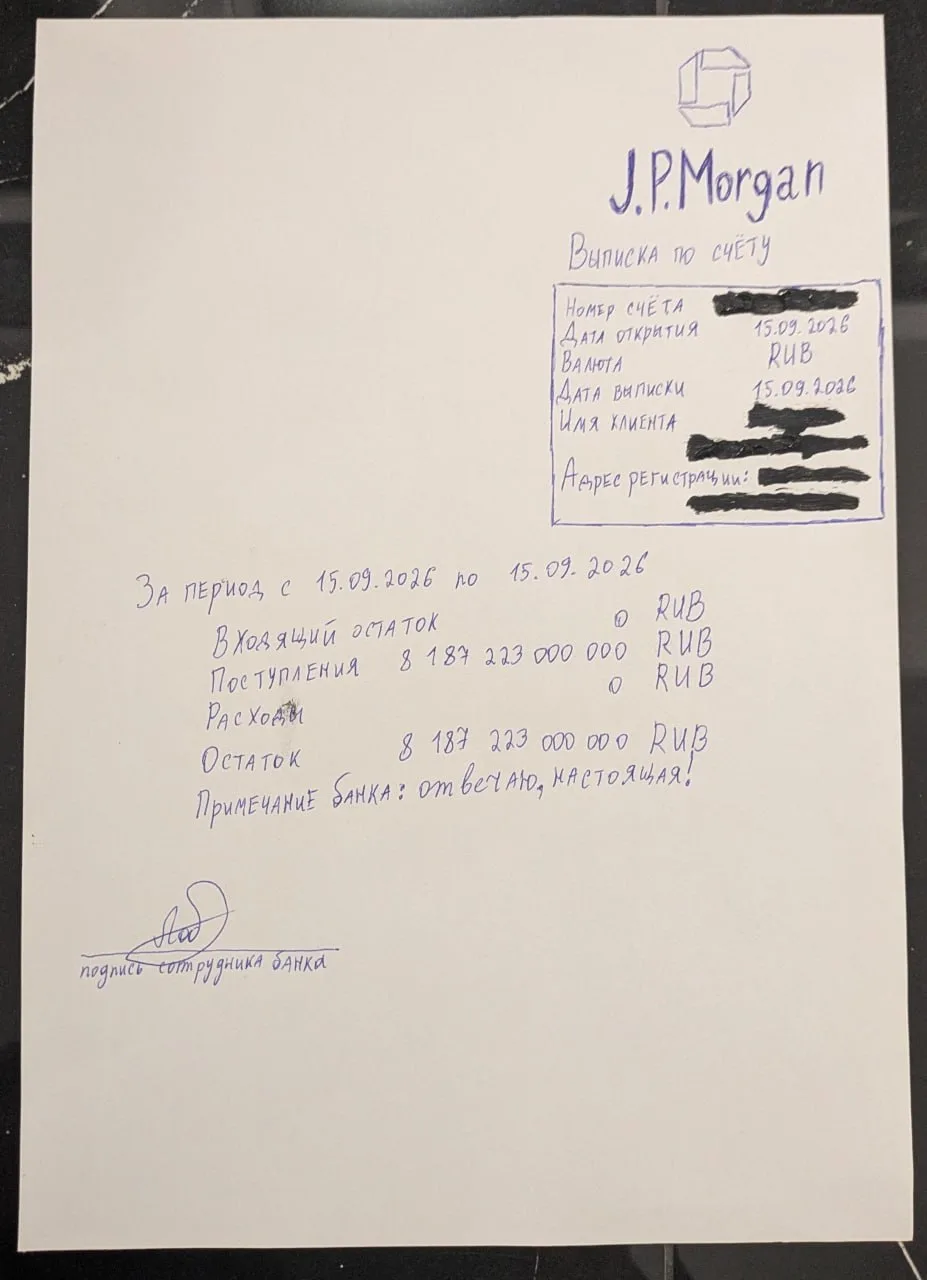 J.P.Morgan
Выписка по счёту
Номер счёта
Дата открытия 15.09.2026
Валюта RUB
Дата выписки 15.09.2026
Имя клиента
Адрес регистрации:
За период с 15.09.2026 по 15.09.2026
Входящий остаток 0 RUB
Поступления 8 187 223 000 000 RUB
Расходы 0 RUB
Остаток 8 187 223 000 000 RUB
Примечание банка: отвечаю, настоящая!
подпись сотрудника банка